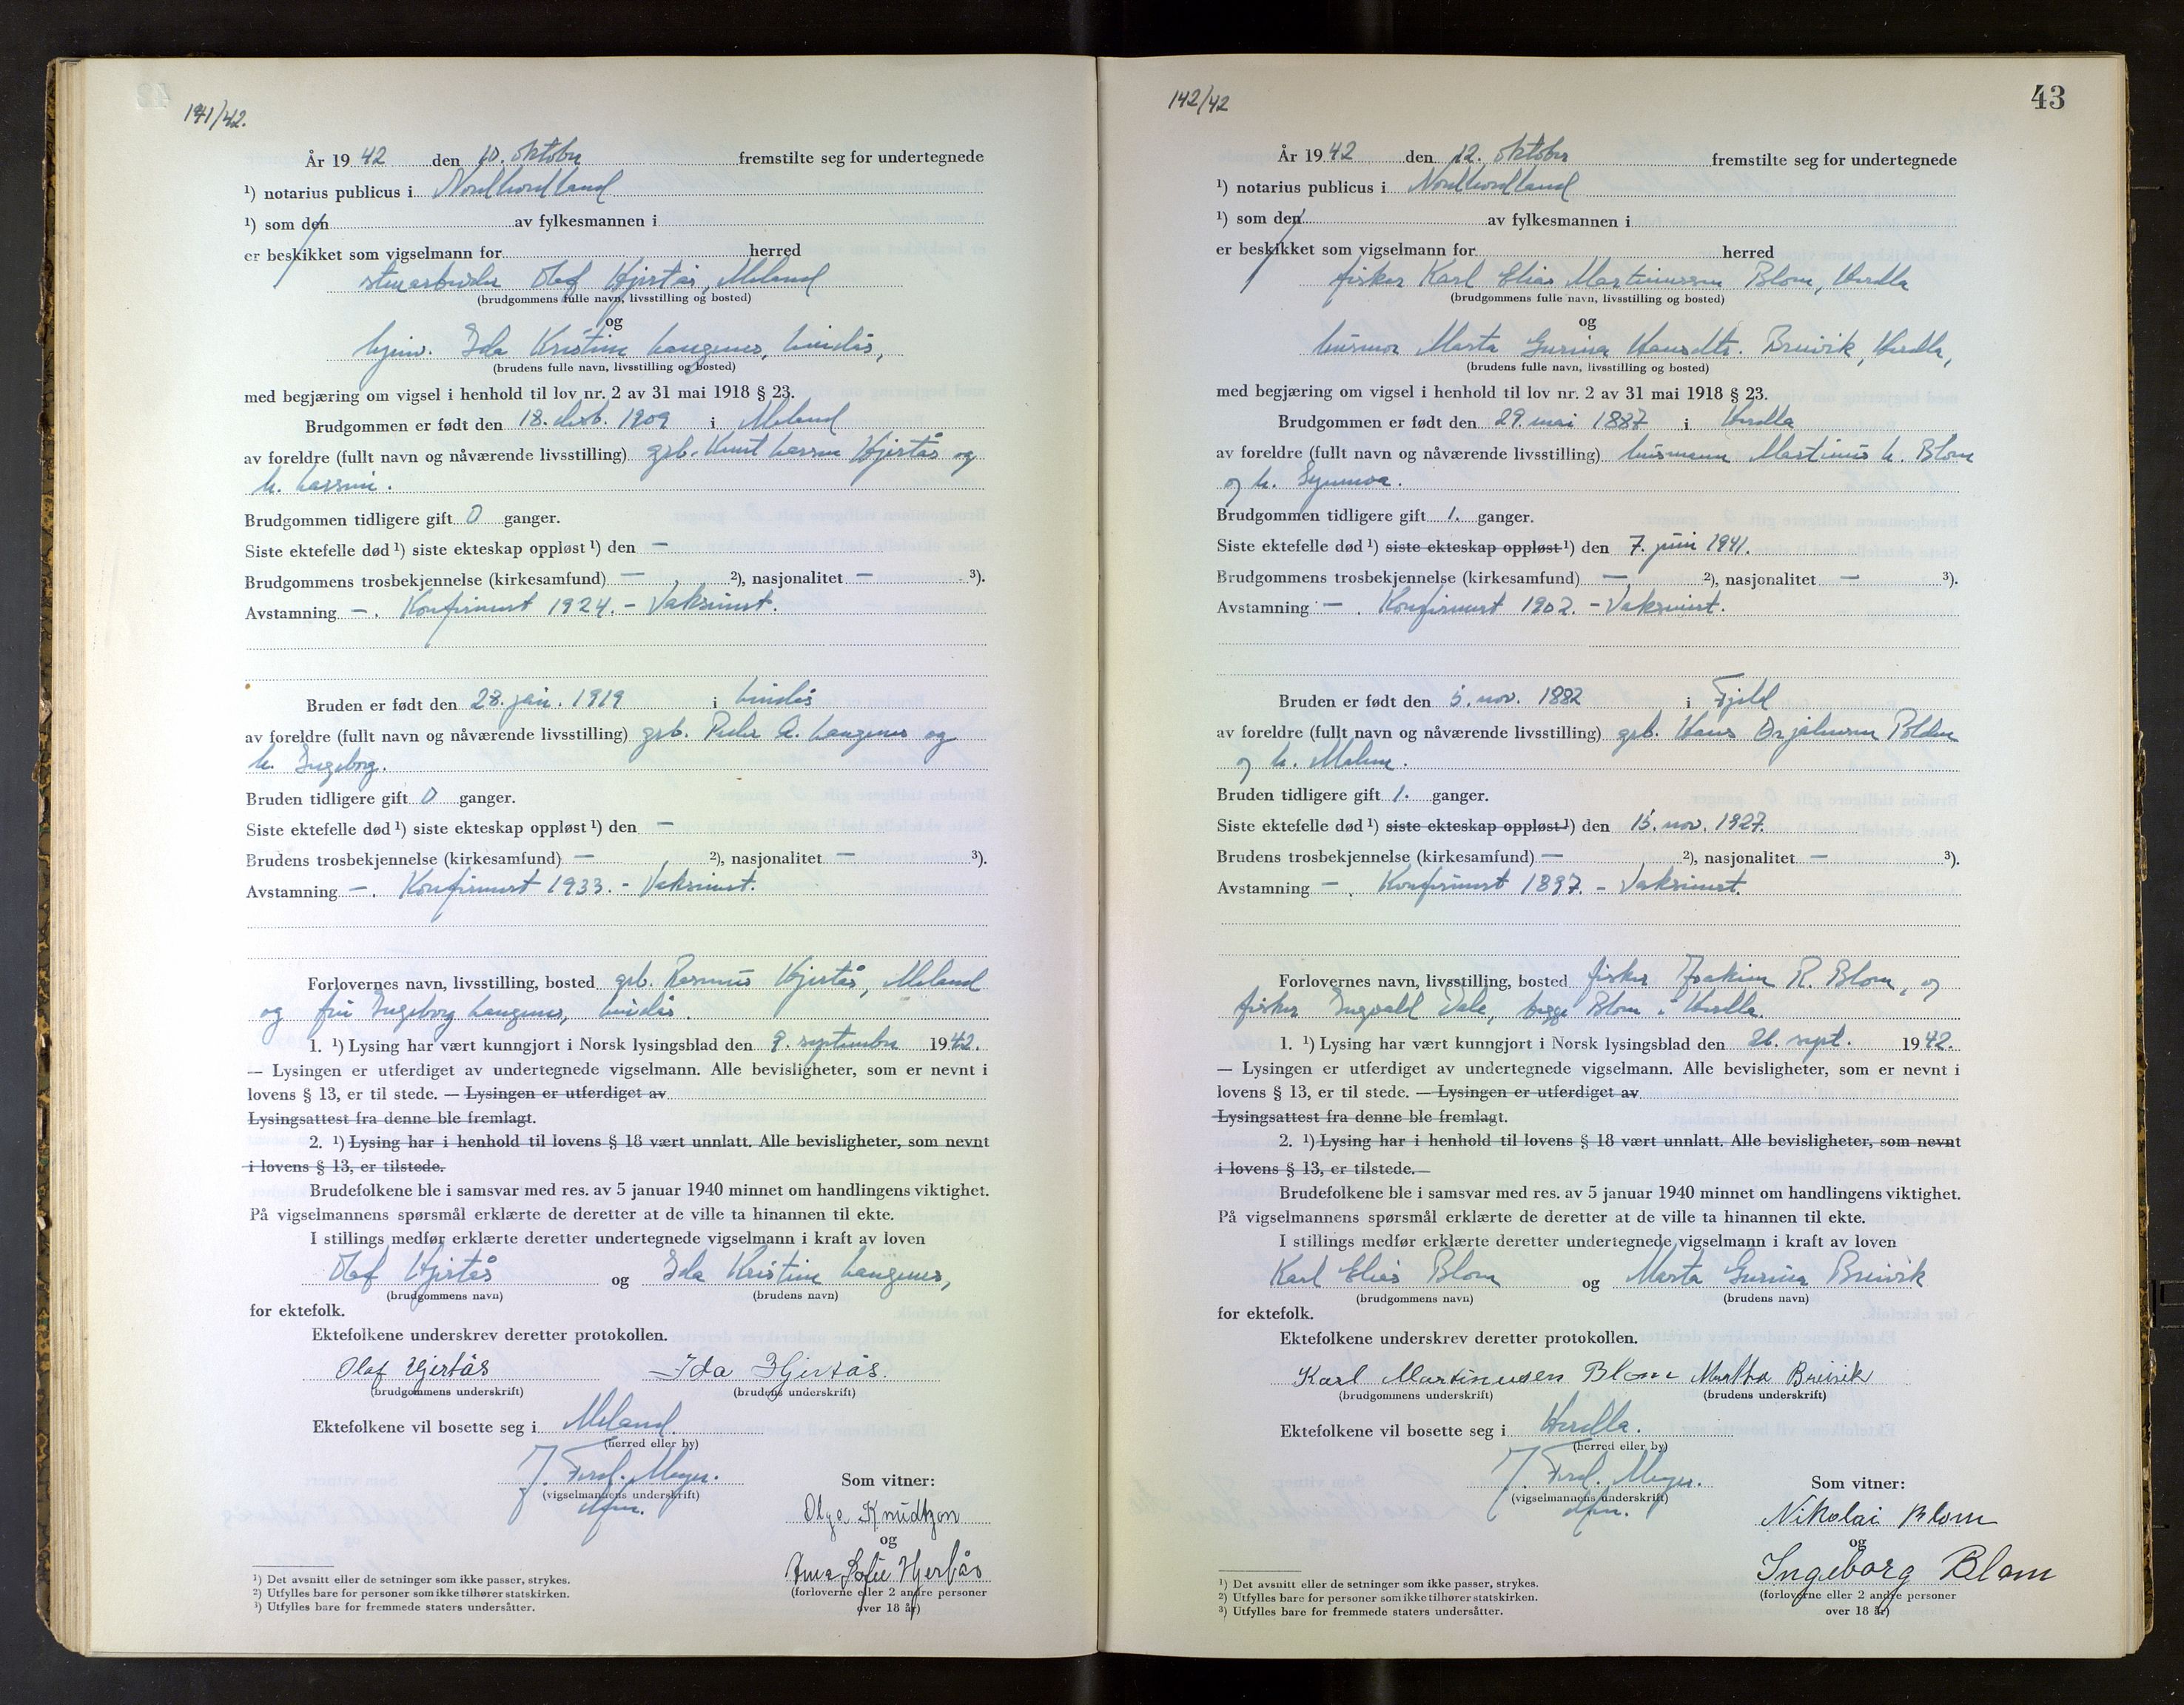 141/42.
År 1942 den 10. oktober fremstilte seg for undertegnede
¹) notarius publicus i Nordhordland
¹) som den av fylkesmannen i
er beskikket som vigselmann for herred
stenarbeider Olaf Hjertås, Meland
(brudgommens fulle navn, livsstilling og bosted)
og
hjemv. Ida Kristine Langenes, Lindås,
(brudens fulle navn, livsstilling og bosted)
med begjæring om vigsel i henhold til lov nr. 2 av 31 mai 1918 § 23.
Brudgommen er født den 18. desb. 1909 i Meland
av foreldre (fullt navn og nåværende livsstilling) grb. Knut Larsen Hjertås og
h. Larsine.
Brudgommen tidligere gift 0 ganger.
Siste ektefelle død ¹) siste ekteskap oppløst ¹) den —
Brudgommens trosbekjennelse (kirkesamfund) — ²), nasjonalitet — ³).
Avstamning —. Konfirmert 1924. - Vaksinert.
Bruden er født den 28. jan. 1919 i Lindås
av foreldre (fullt navn og nåværende livsstilling) grb. Peder A. Langenes og
h. Ingeborg.
Bruden tidligere gift 0 ganger.
Siste ektefelle død ¹) siste ekteskap oppløst ¹) den —
Brudens trosbekjennelse (kirkesamfund) — ²), nasjonalitet — ³).
Avstamning —. Konfirmert 1933. - Vaksinert.
Forlovernes navn, livsstilling, bosted grb. Rasmus Hjertås, Meland
og fru Ingeborg Langenes, Lindås.
1. ¹) Lysing har vært kunngjort i Norsk lysingsblad den 9. september 1942.
— Lysingen er utferdiget av undertegnede vigselmann. Alle bevisligheter, som er nevnt i
lovens § 13, er til stede. — Lysingen er utferdiget av
Lysingsattest fra denne ble fremlagt.
2. ¹) Lysing har i henhold til lovens § 18 vært unnlatt. Alle bevisligheter, som nevnt
i lovens § 13, er tilstede.
Brudefolkene ble i samsvar med res. av 5 januar 1940 minnet om handlingens viktighet.
På vigselmannens spørsmål erklærte de deretter at de ville ta hinannen til ekte.
I stillings medfør erklærte deretter undertegnede vigselmann i kraft av loven
Olaf Hjertås og Ida Kristine Langenes,
(brudgommens navn) (brudens navn)
for ektefolk.
Ektefolkene underskrev deretter protokollen.
Olaf Hjertås Ida Hjertås.
(brudgommens underskrift) (brudens underskrift)
Ektefolkene vil bosette seg i Meland.
(herred eller by)
J. Ferd. Meyer.
(vigselmannens underskrift)
Som vitner:
Olga Knudtzon
og
Anna Sofie Hjertås
(forloverne eller 2 andre personer
over 18 år)
¹) Det avsnitt eller de setninger som ikke passer, strykes.
²) Utfylles bare for personer som ikke tilhører statskirken.
³) Utfylles bare for fremmede staters undersåtter.
142/42
43
År 1942 den 12. oktober fremstilte seg for undertegnede
¹) notarius publicus i Nordhordland
¹) som den av fylkesmannen i
er beskikket som vigselmann for herred
fisker Karl Elias Martinussen Blom, Herdla
(brudgommens fulle navn, livsstilling og bosted)
og
husmor Marta Gurina Hansdtr. Breivik, Herdla,
(brudens fulle navn, livsstilling og bosted)
med begjæring om vigsel i henhold til lov nr. 2 av 31 mai 1918 § 23.
Brudgommen er født den 29. mai 1887 i Herdla
av foreldre (fullt navn og nåværende livsstilling) husmann Martinus L. Blom
og h. Synnøva.
Brudgommen tidligere gift 1. ganger.
Siste ektefelle død ¹) siste ekteskap oppløst ¹) den 7. juni 1941.
Brudgommens trosbekjennelse (kirkesamfund) — ²), nasjonalitet — ³).
Avstamning —. Konfirmert 1902. - Vaksinert.
Bruden er født den 5. nov. 1882 i Fjeld
av foreldre (fullt navn og nåværende livsstilling) grb. Hans Ørjansen Polden
og h. Malene.
Bruden tidligere gift 1. ganger.
Siste ektefelle død ¹) siste ekteskap oppløst ¹) den 15. nov. 1927.
Brudens trosbekjennelse (kirkesamfund) — ²), nasjonalitet — ³).
Avstamning —. Konfirmert 1897. - Vaksinert.
Forlovernes navn, livsstilling, bosted fisker Joakim R. Blom, og
fisker Ingvald Dale, begge Blom i Herdla.
1. ¹) Lysing har vært kunngjort i Norsk lysingsblad den 26. sept. 1942.
— Lysingen er utferdiget av undertegnede vigselmann. Alle bevisligheter, som er nevnt i
lovens § 13, er til stede. — Lysingen er utferdiget av
Lysingsattest fra denne ble fremlagt.
2. ¹) Lysing har i henhold til lovens § 18 vært unnlatt. Alle bevisligheter, som nevnt
i lovens § 13, er tilstede.
Brudefolkene ble i samsvar med res. av 5 januar 1940 minnet om handlingens viktighet.
På vigselmannens spørsmål erklærte de deretter at de ville ta hinannen til ekte.
I stillings medfør erklærte deretter undertegnede vigselmann i kraft av loven
Karl Elias Blom og Marta Gurina Breivik
(brudgommens navn) (brudens navn)
for ektefolk.
Ektefolkene underskrev deretter protokollen.
Karl Martinusen Blom Martha Breivik
(brudgommens underskrift) (brudens underskrift)
Ektefolkene vil bosette seg i Herdla.
(herred eller by)
J. Ferd. Meyer.
(vigselmannens underskrift)
Som vitner:
Nikolai Blom
og
Ingeborg Blom
(forloverne eller 2 andre personer
over 18 år)
¹) Det avsnitt eller de setninger som ikke passer, strykes.
²) Utfylles bare for personer som ikke tilhører statskirken.
³) Utfylles bare for fremmede staters undersåtter.